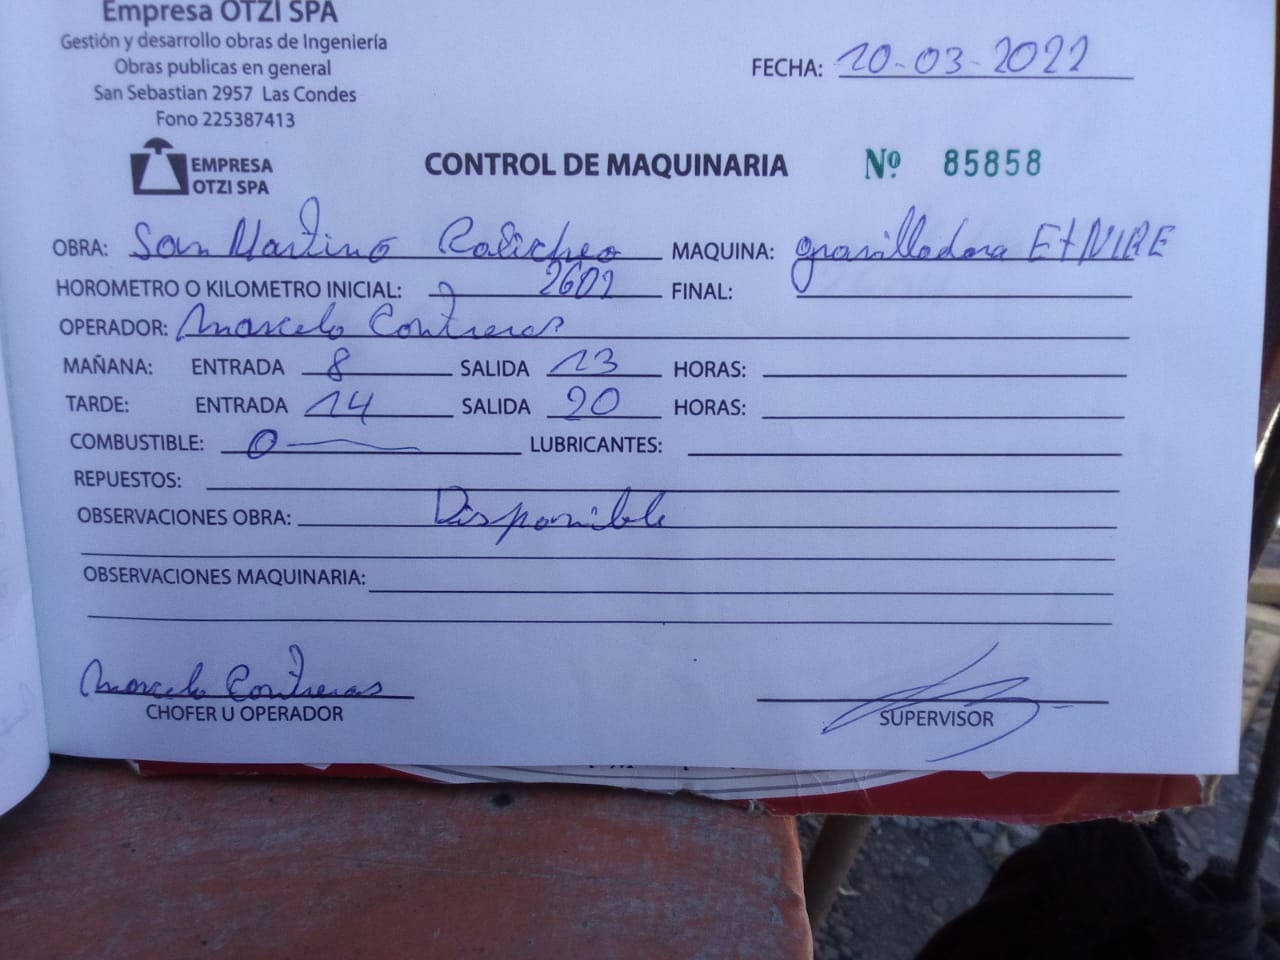 Empresa OTZI SPA
Gestión y desarrollo obras de Ingeniería
Obras publicas en general
San Sebastian 2957 Las Condes
Fono 225387413
FECHA: 10-03-2022
EMPRESA
OTZI SPA
CONTROL DE MAQUINARIA Nº 85858
OBRA: San Martino MAQUINA: gravilladora
HOROMETRO O KILOMETRO INICIAL: 2602 FINAL:
OPERADOR: Marcelo Contreras
MAÑANA: ENTRADA 8 SALIDA 13 HORAS:
TARDE: ENTRADA 14 SALIDA 20 HORAS:
COMBUSTIBLE: 0 LUBRICANTES:
REPUESTOS:
OBSERVACIONES OBRA: Disponible
OBSERVACIONES MAQUINARIA:
Marcelo Contreras
CHOFER U OPERADOR
SUPERVISOR